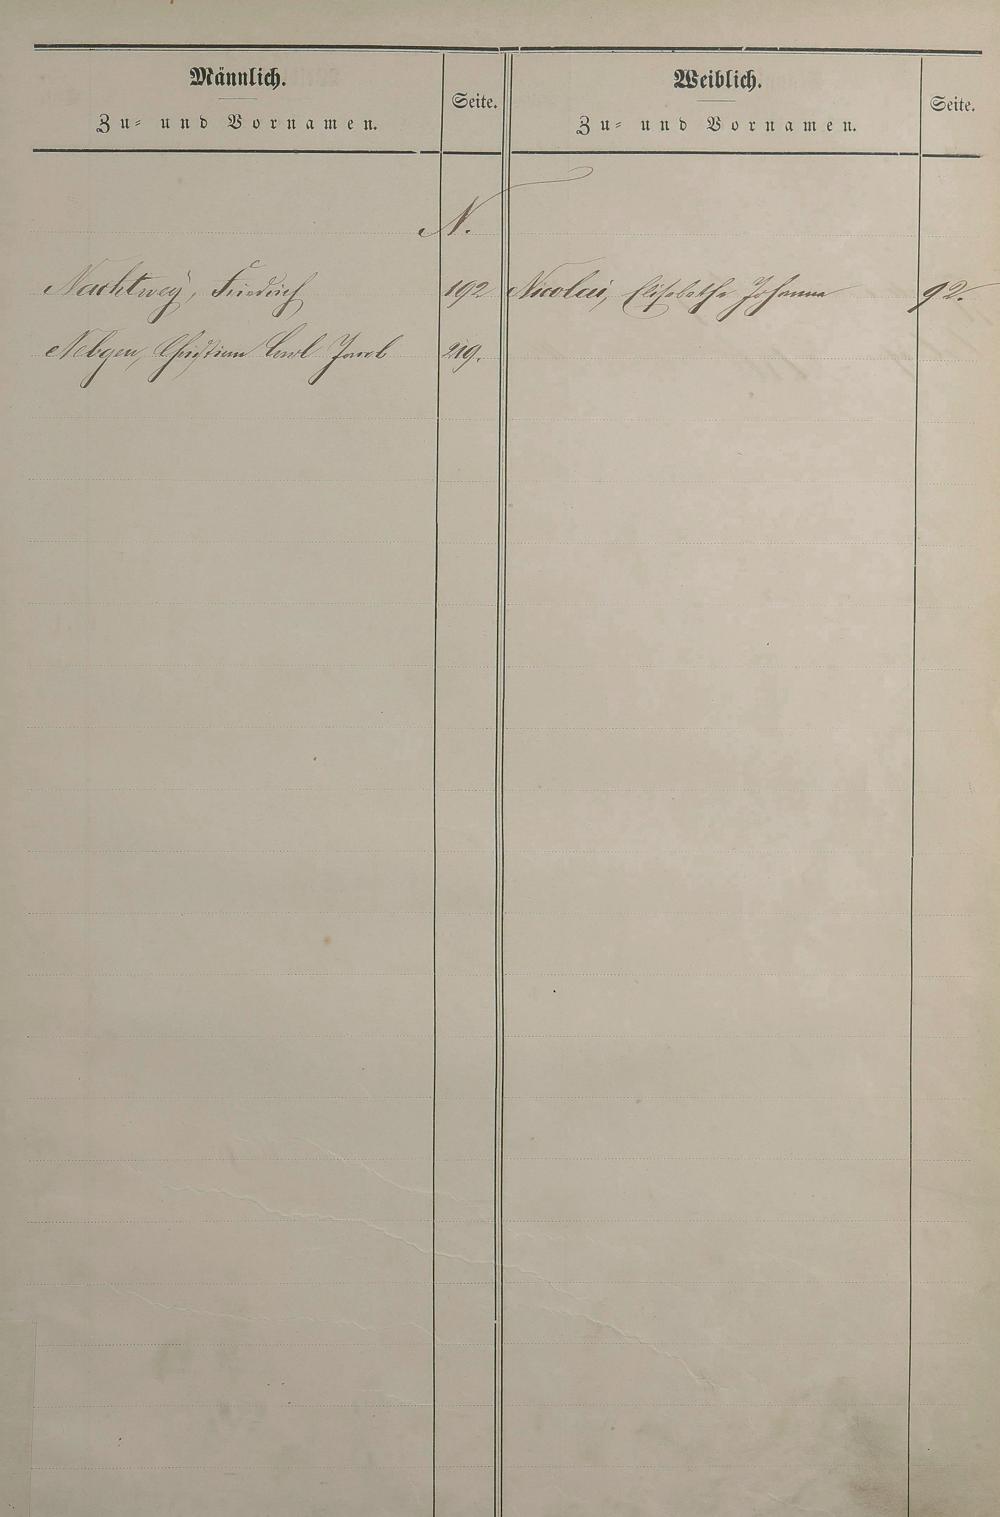 Männlich.
Zu- und Vornamen.
Seite.
Weiblich.
Zu- und Vornamen.
Seite.
N.
Nachtwey, Friedrich 192 Nicolai, Elisabetha Johanna 92.
Nebgen, Christian Carl Jacob 219.